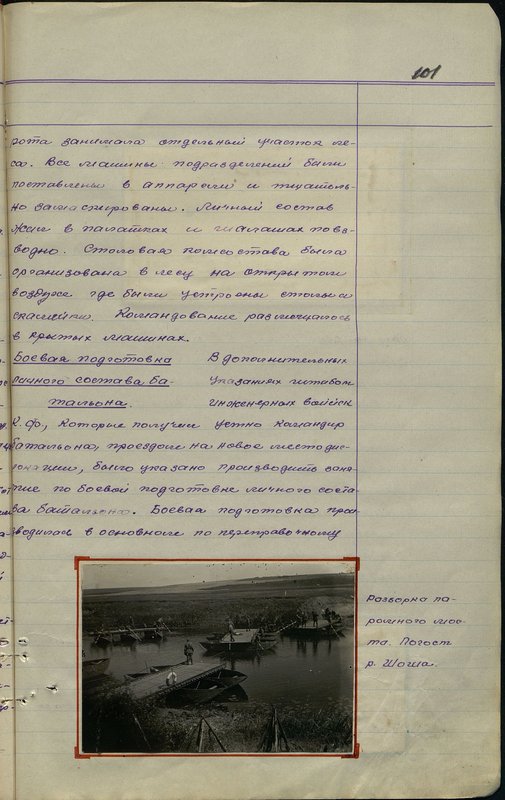 101
рота занимала отдельный участок ле-
са. Все машины подразделений были
поставлены в аппарели и тщатель-
но замаскированы. Личный состав
жил в палатках и шалашах повз-
водно. Столовая комсостава была
организована в лесу на открытом
воздухе где были устроены столы и
скамейки. Командование размещалось
в крытых машинах.
Боевая подготовка
личного состава ба-
тальона.
В дополнительных
указаниях штабом
инженерных войск
К.Ф., которые получил устно командир
батальона, проездом на новое место дис-
локации, было указано производить заня-
тие по боевой подготовке личного соста-
ва батальона. Боевая подготовка про-
водилась в основном по переправочному
Разборка па-
ромного мос-
та. Погост
р. Шоша.